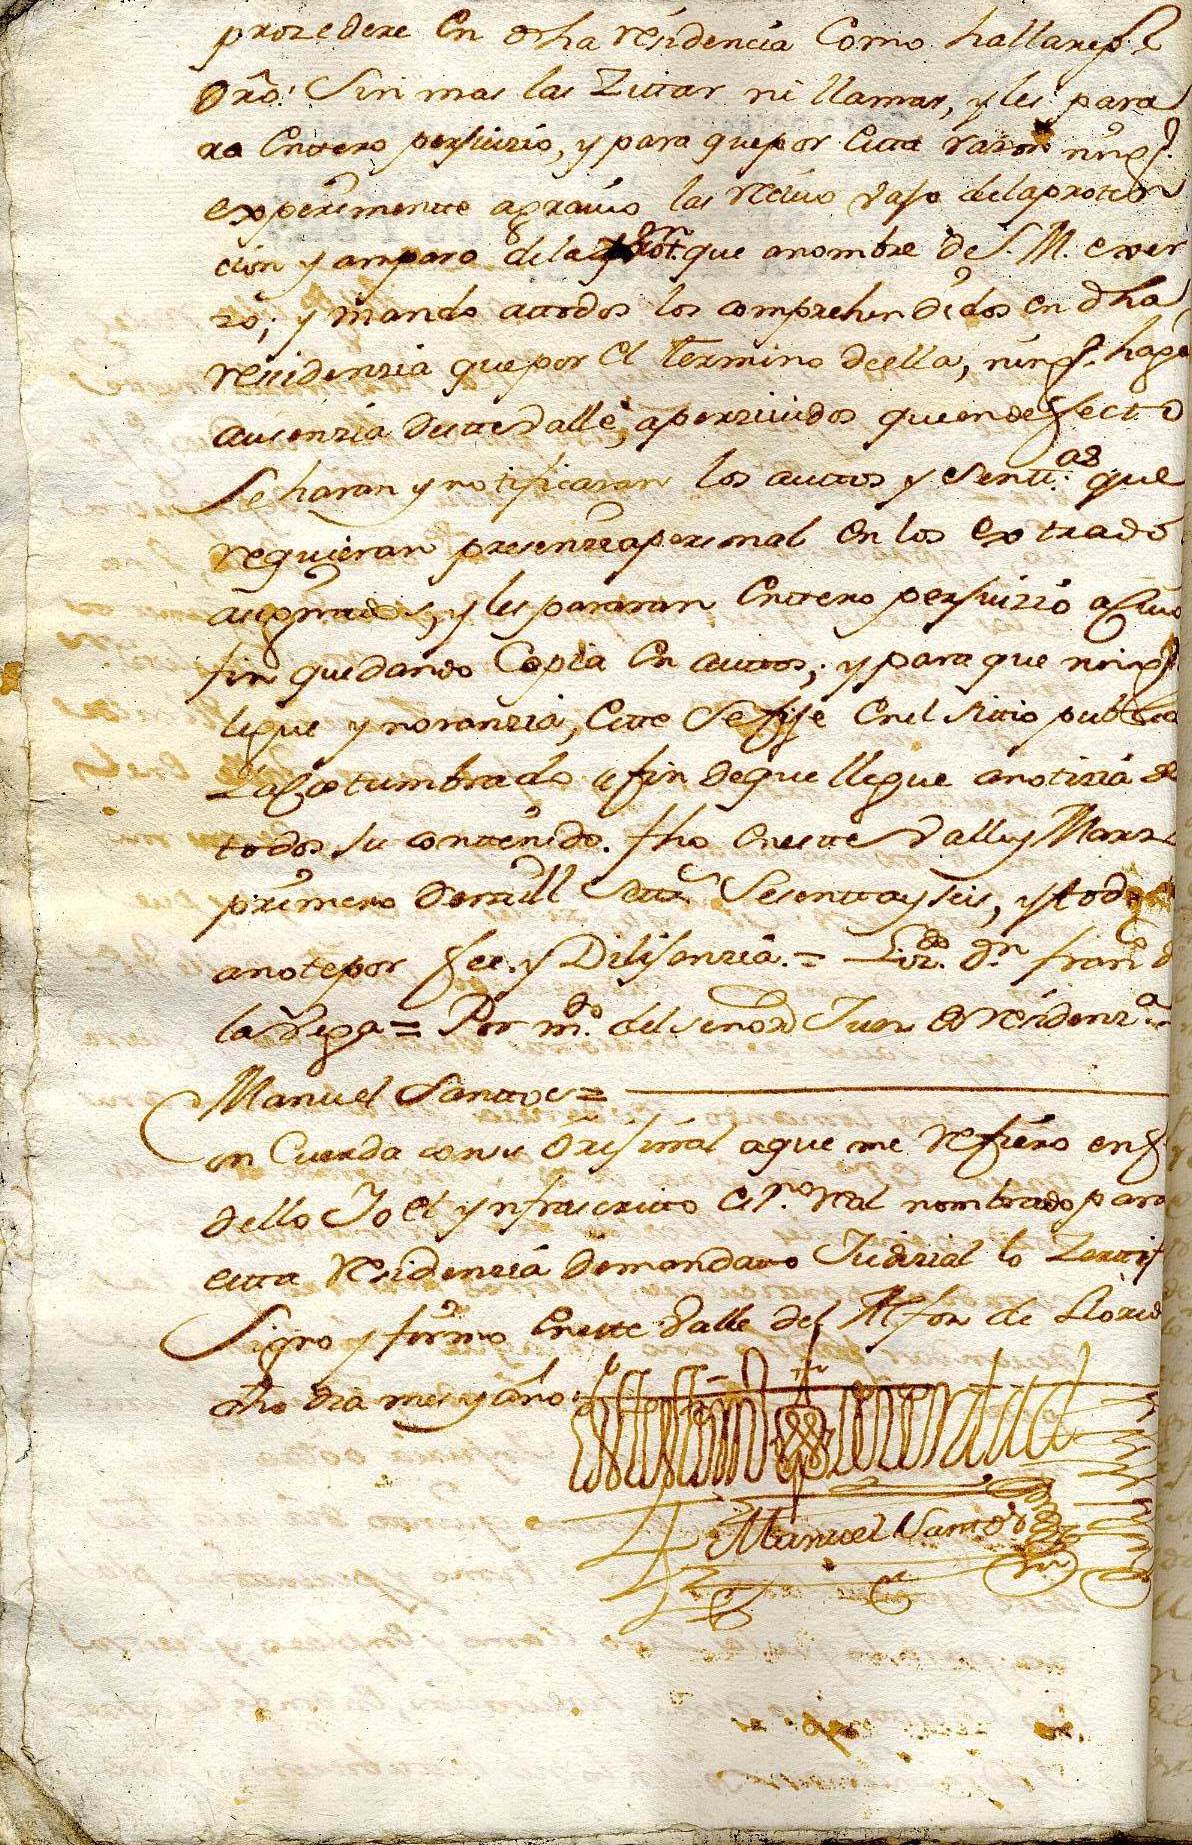 prozedere en dha residencia como hallare p.r
dro. sin mas las Zittar ni llamar, y les para
ra entero perjuizio, y para que por esta razon ning.o
experimentte agravio las rezivo vajo de la protec
cion y amparo de la Jurn. que a nombre de S. M. exer
zo; y mando attodos los comprehendidos en dha
residenzia que por el termino de ella, ning.o haga
ausenzia deste valle, aperzividos que en defecto
se haran y notificaran los auttos y sentt.as que
requieran presenzia personal en los extrados
asignados, y les pararan entero perjuizio a cuio
fin quedando Copia en auttos; y para que ning.o
legue ynoranzia, este se fije en el sittio publico
Lacostumbrado a fin de que llegue a notizia de
todos su contenido. fho en este valle y Marzo
primero de mill Settz.s Sesentta y seis, y todo
anote por fee. y Dilijenzia. = Liz.do D.n fran.co de
la Vega = Por m.do del señor Juez de residenz.a
Manuel Santtos =
Con Cuerda con su Orijinal a que me refiero en fee
dello Yo el ynfraescritto es.no real nombrado para
esta residenzia de mandatto Judizial lo Zertifico
Signo y firmo en este valle del Alfoz de Lloredo
dho dia mes y año =
Manuel Santtos